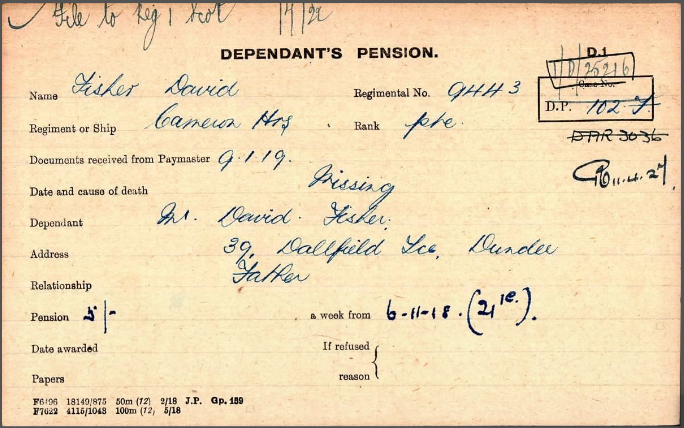 File to Reg 1 Scot
DEPENDANT'S PENSION.
D.1
1/D/25216
Case No.
Name Fisher David Regimental No. 9443
D.P. 102 F.
Regiment or Ship Cameron Hrs Rank pte.
DAR 3036
Documents received from Paymaster 9.1.19.
11.4.27.
Date and cause of death Missing
Dependant Mr. David Fisher.
Address 39, Dallfield Tce, Dundee
Relationship Father
Pension 5/- a week from 6-11-18. (21 1e.).
Date awarded If refused
Papers reason
F6496 18149/875 50m (12) 2/18 J.P. Gp. 159
F7622 4115/1043 100m (12) 5/18